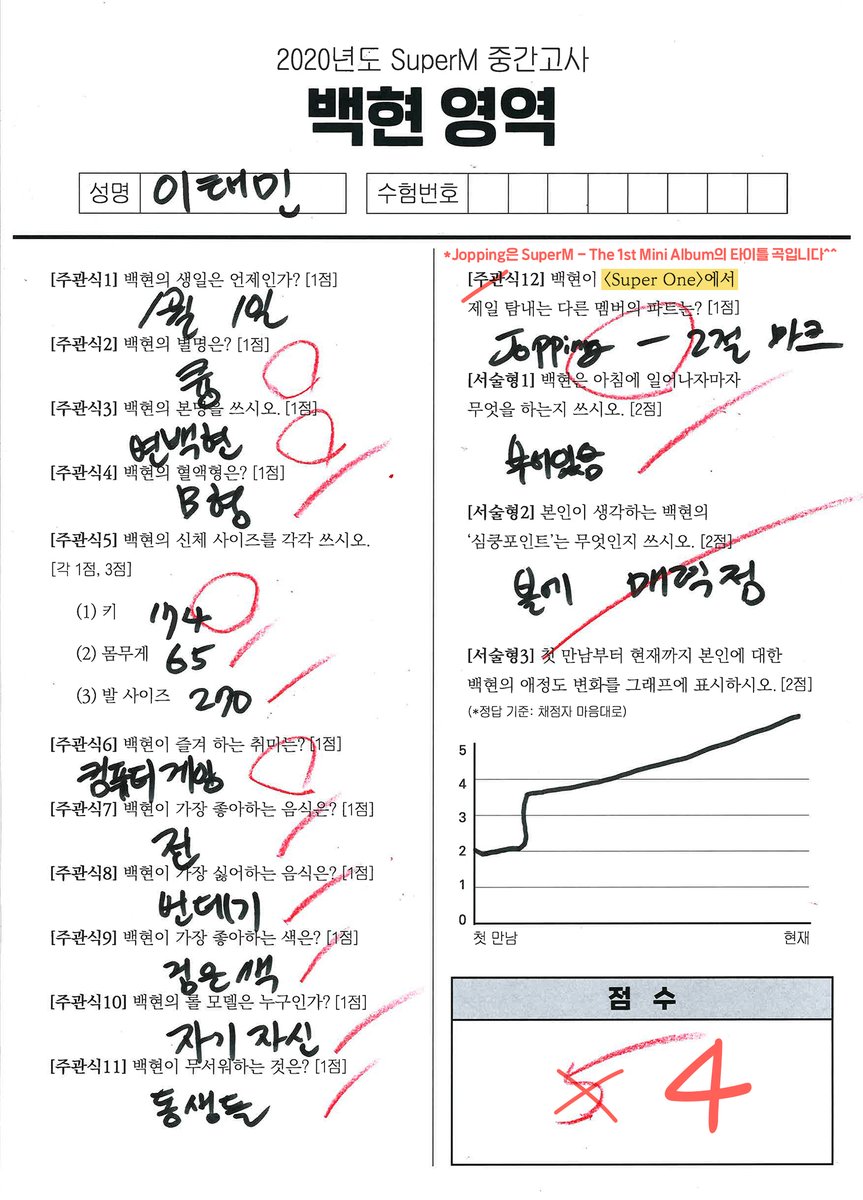 2020년도 SuperM 중간고사
백현 영역
성명 이태민 수험번호
[주관식1] 백현의 생일은 언제인가? [1점]
1월 1일
[주관식2] 백현의 별명은? [1점]
큥
[주관식3] 백현의 본명을 쓰시오. [1점]
변백현
[주관식4] 백현의 혈액형은? [1점]
B형
[주관식5] 백현의 신체 사이즈를 각각 쓰시오.
[각 1점, 3점]
(1) 키 174
(2) 몸무게 65
(3) 발 사이즈 270
[주관식6] 백현이 즐겨 하는 취미는? [1점]
컴퓨터 게임
[주관식7] 백현이 가장 좋아하는 음식은? [1점]
전
[주관식8] 백현이 가장 싫어하는 음식은? [1점]
번데기
[주관식9] 백현이 가장 좋아하는 색은? [1점]
검은색
[주관식10] 백현의 롤 모델은 누구인가? [1점]
자기 자신
[주관식11] 백현이 무서워하는 것은? [1점]
동생들
*Jopping은 SuperM - The 1st Mini Album의 타이틀 곡입니다^^
[주관식12] 백현이 〈Super One〉에서
제일 탐내는 다른 멤버의 파트는? [1점]
Jopping - 2절 마크
[서술형1] 백현은 아침에 일어나자마자
무엇을 하는지 쓰시오. [2점]
누어있음
[서술형2] 본인이 생각하는 백현의
'심쿵포인트'는 무엇인지 쓰시오. [2점]
볼에 매력점
[서술형3] 첫 만남부터 현재까지 본인에 대한
백현의 애정도 변화를 그래프에 표시하시오. [2점]
(*정답 기준: 채점자 마음대로)
5
4
3
2
1
0
첫 만남 현재
점 수
5 4